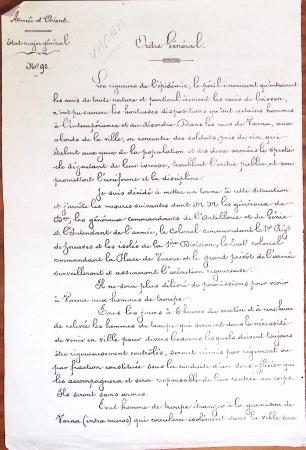 Armée d'Orient.
Etat-major général
No 92.
Ordre Général.
Les rigueurs de l'épidémie, le péril imminent qu'entraînent
les excès de toute nature et particulièrement les excès de boisson,
n'ont pu vaincre les honteuses dispositions qu'ont certains hommes
à l'intempérance et au désordre. Dans les rues de Varna, aux
abords de la ville, on rencontre des soldats, pris de vin, qui
étalent aux yeux de la population et des deux armées le specta-
cle dégoûtant de leur ivresse, troublent l'ordre public et com-
promettent l'uniforme et la discipline.
Je suis décidé à mettre un terme à cette situation
et j'arrête les mesures suivantes dont M.M. les généraux de
les généraux commandants de l'Artillerie et du Génie
et l'Intendant de l'armée, le Colonel commandant le 1er Régt
de Zouaves et les isolés de la Division, le Lieut. colonel
commandant la Place de Varna et le grand prévôt de l'armée
surveilleront et assureront l'exécution rigoureuse.
Il ne sera plus délivré de permissions pour venir
à Varna aux hommes de troupe.
Tous les jours à 6 heures du matin et à une heure
de relevée les hommes de troupe qui seraient dans la nécessité
de venir en ville pour divers besoins lesquels devront toujours
être rigoureusement contrôlés, seront réunis par régiment ou
par fraction constituée sous la conduite d'un sous-officier qui
les accompagnera et sera responsable de leur rentrée au corps.
Ils seront sans armes.
Tout homme de troupe étranger à la garnison de
Varna (intra muros) qui circulera isolément dans la ville sera